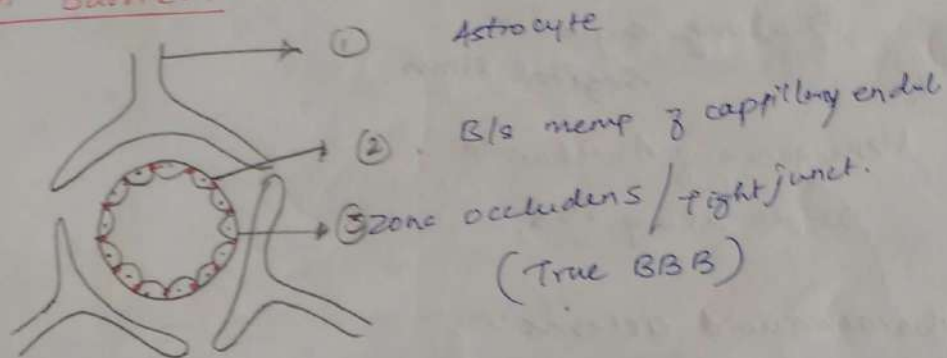 Barrier
① Astrocyte
② . B/s memp of cappillary endul
③ zona occludens / tight junct.
(True BBB)